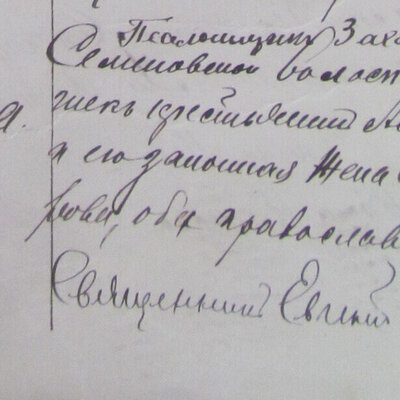 Псаломщикъ Заха
Семеновской волост
крестьянинъ
и его законная жена
рова, оба православ
Священникъ Евгеній